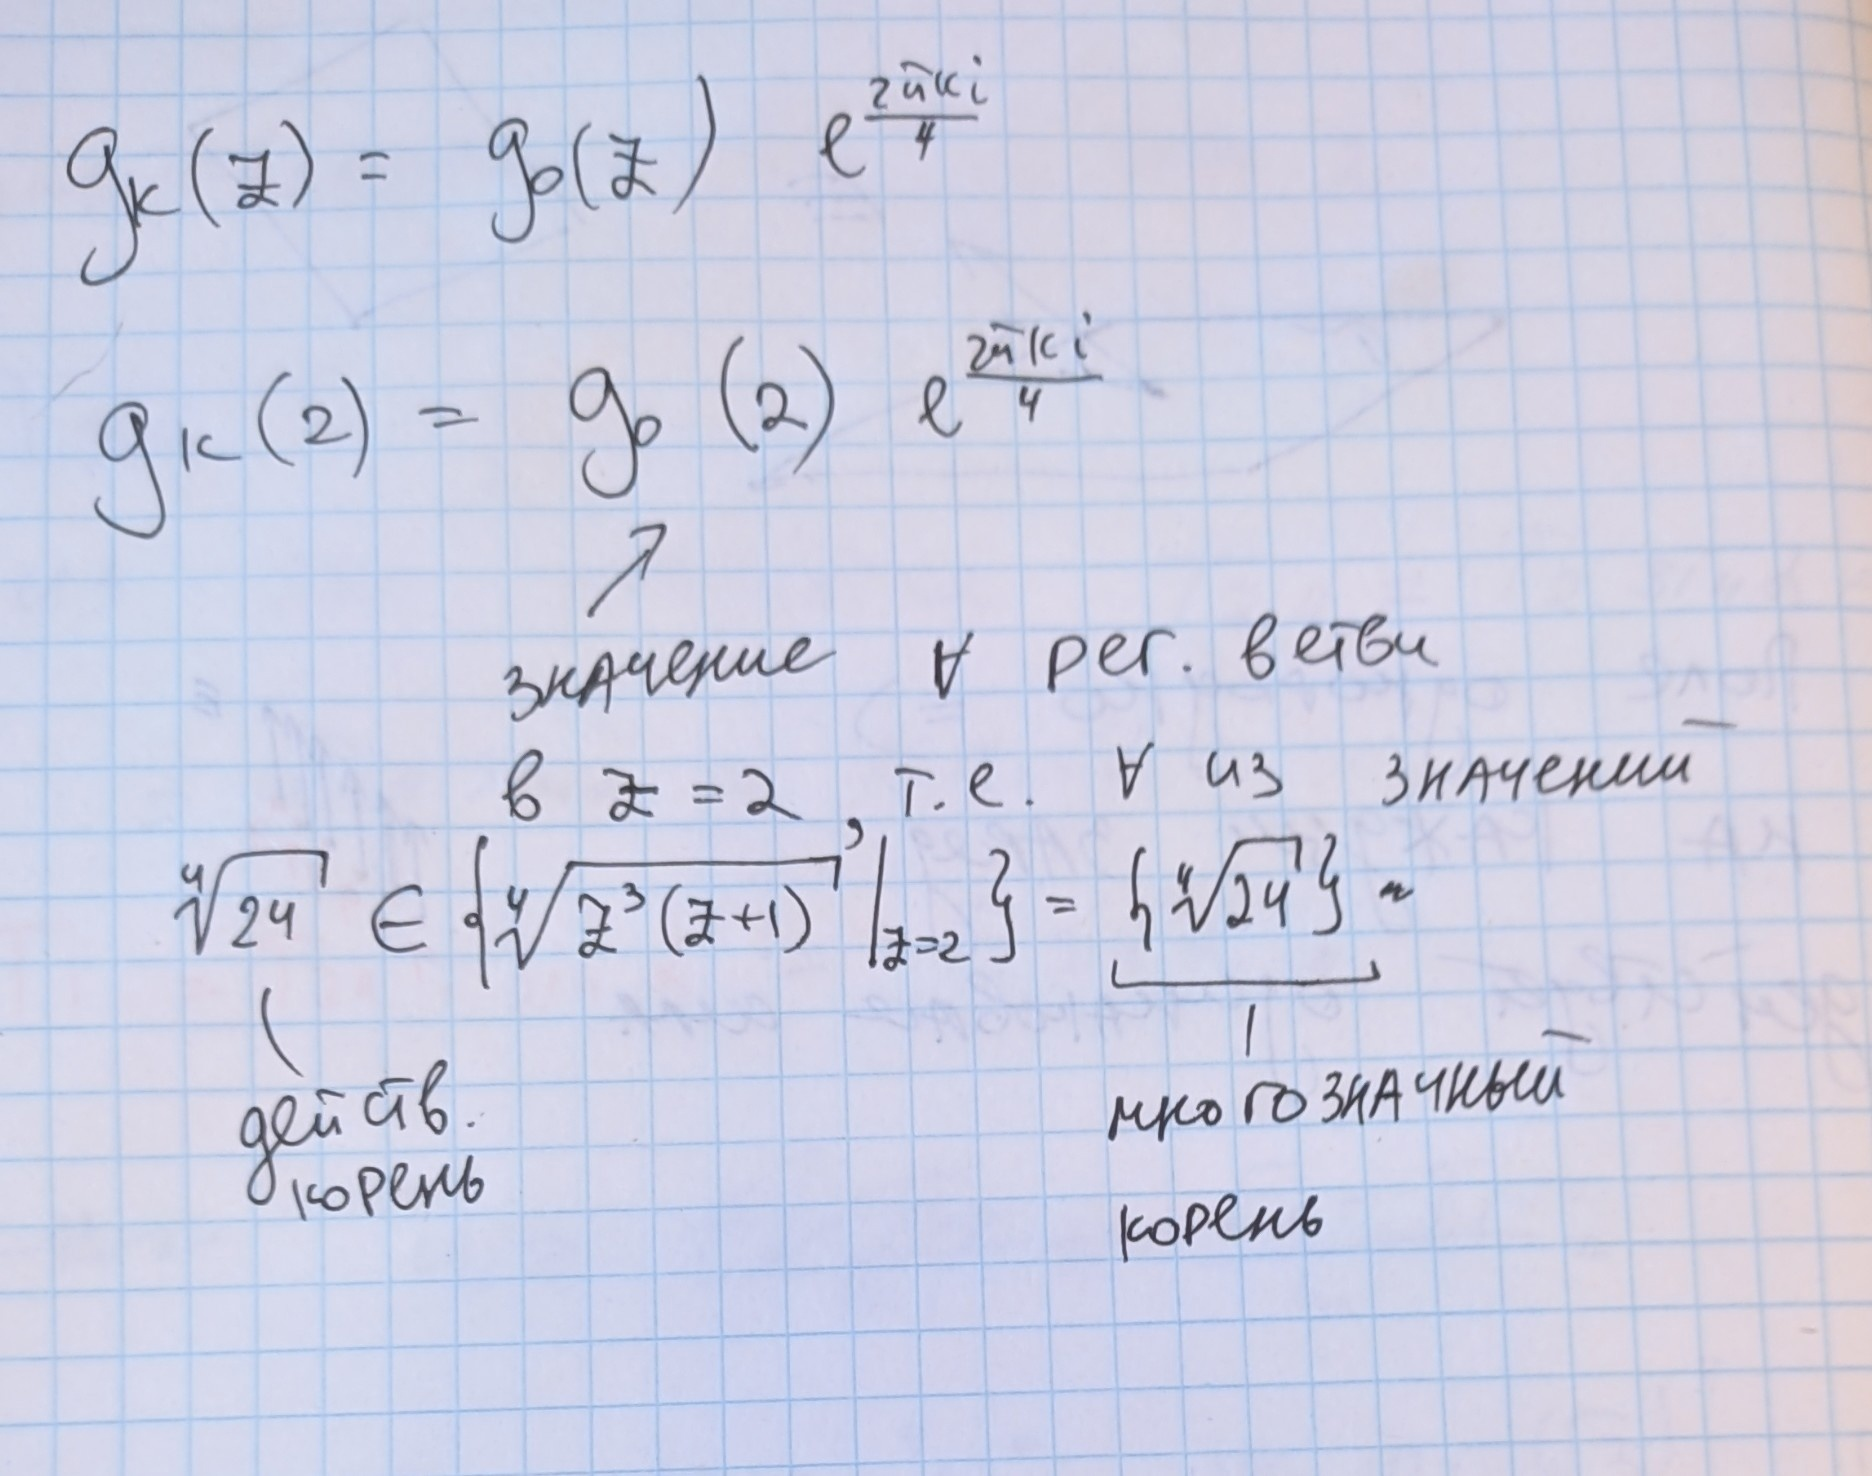 g_k(z) = g_0(z) e^{\frac{2πki}{4}}
g_k(2) = g_0(2) e^{\frac{2πki}{4}}
↗
значение ∀ рег. ветви
в z = 2, т.е. ∀ из значений
\sqrt[4]{24} ∈ {\sqrt[4]{z^3(z+1)}|_{z=2}} = {\sqrt[4]{24}}
действ. корень
многозначный корень